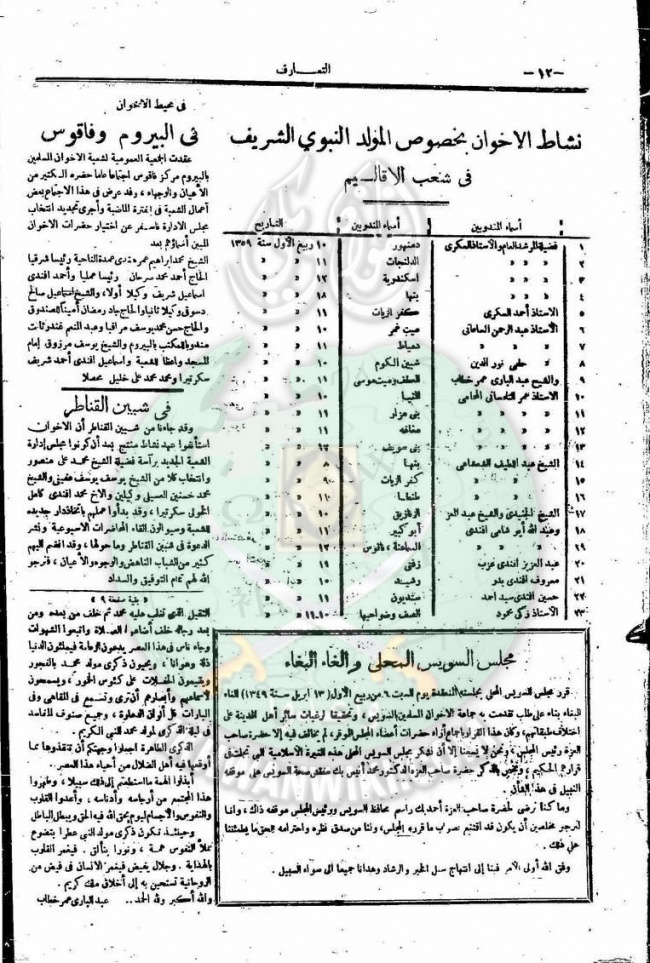 — ١٢ —
التعارف
نشاط الاخوان بخصوص المولد النبوي الشريف
فى شعب الاقاليم
أسماء المندوبين أسماء المندوبين التاريخ
١ فضيلة المرشد العام والأستاذ السكرى دمنهور ١٠ ربيع الأول سنة ١٣٥٩
٢ » » » الدلنجات ١١ » »
٣ » » » اسكندرية ١٢ » »
٤ » » » بنها ١٨ » »
٥ الاستاذ أحمد السكرى كفر الزيات ١١ » »
٦ الأستاذ عبد الرحمن الساعاتى ميت غمر ١٠ » »
٧ » » » دمياط ١١ » »
٨ » حلمى نور الدين شبين الكوم ١٠ » »
٩ والشيخ عبد البارى عمر خطاب ١١ » »
١٠ الأستاذ عمر التلمسانى المحامى المنيا ١٠ » »
١١ » » » بنى مزار ١١ » »
١٢ » » » مغاغه ١٠ » »
١٣ » » » بنى سويف ١٢ » »
١٤ الشيخ عبد اللطيف الشعشاعى بنها ٨ » »
١٥ » » » كفر الزيات ٩٠ » »
١٦ » » » طنطا ١١٠ » »
١٧ الشيخ الجنيدى والشيخ عبد المعز الزقازيق ١٠ » »
١٨ وعبد الله أبو شامى افندى أبو كبير ١١ » »
١٩ » » » فاقوس ١٢ » »
٢٠ عبد العزيز افندى زفتى ١١ » »
٢١ معروف افندى بدر رشيد ١٠ » »
٢٢ حسين افندى سيد احمد سنديون ١٠ » »
٢٣ الأستاذ زكى محمود الصف وضواحيها ١٠،١١ » »
مجلس السويس المحلى والغاء البغاء
قرر مجلس السويس المحلى بجلسته المنعقدة يوم السبت ٦ من ربيع الأول (١٣ ابريل سنة الغاء
البغاء بناء على طلب تقدمت به جماعة الاخوان المسلمين بالسويس، وتحقيقا لرغبات سائر أهل المدينة على
اختلاف طبقاتهم، وكان هذا القرار باجماع آراء حضرات أعضاء المجلس الموقر، لم يخالف فيه إلا حضرة صاحب
العزة رئيس المجلس، ونحن لا يسعنا إلا أن نشكر مجلس السويس المحلى هذه الغيرة الاسلامية التى تجلت فى
قرارهم الحكيم، ونخص بالذكر حضرة صاحب العزة الدكتور محمد أنيس بك مفتش صحة السويس على موقفه
النبيل فى هذا الشأن.
وما كنا نرضى لحضرة صاحب العزة أحمد بك راسم محافظ السويس ورئيس المجلس موقفه ذلك، وانا
لنرجو مخلصين أن يكون قد اقتنع بصواب ما قرره المجلس، ولنا من صدق نظره واحترامه للحق ما يطمئننا
على ذلك.
وفق الله أولى الأمر فينا إلى انتهاج سبل الخير والرشاد وهدانا جميعا الى سواء السبيل.
فى محيط الاخوان
فى البيروم وفاقوس
عقدت الجمعية العمومية لشعبة الاخوان المسلمين
بالبيروم مركز فاقوس اجتماعا عاما حضره الكثير من
الأعيان والوجهاء، وقد عرض فى هذا الاجتماع بعض
أعمال الشعبة فى الفترة الماضية وأجرى تجديد انتخاب
مجلس الادارة فأسفر عن اختيار حضرات الاخوان
المبين أسماؤهم بعد
الشيخ محمد ابراهيم عمدة الناحية رئيسا شرفيا
الحاج أحمد محمد سرحان رئيسا عمليا وأحمد افندى
اسماعيل شريف وكيلا أولا، والشيخ اسماعيل صالح
دسوقى وكيلا ثانيا والحاج جاد رمضان أمينا للصندوق
والحاج حسن محمد يوسف مراقبا وعبد المنعم
مندوبا للمكتب بالبيروم والشيخ يوسف مرزوق إمام
المسجد واعظا للشعبة واسماعيل افندى أحمد شريف
سكرتيرا ومحمد محمد على خليل محصلا
فى شبين القناطر
وقد جاءنا من شبين القناطر أن الاخوان
استأنفوا عهد نشاط منتج بعد أن كونوا مجلس إدارة
الشعبة الجديد برآسة فضيلة الشيخ محمد على منصور
وانتخاب كلا من الشيخ يوسف يوسف والشيخ
محمد حسنين العسيلى وكيلين والاخ محمد افندى كامل
الخولى سكرتيرا، وقد بدأوا عملهم باتخاذ دار جديده
للشعبة وسيوالون القاء المحاضرات الاسبوعية ونشر
الدعوة فى شبين القناطر وما حولها، وقد انضم اليهم
كثير من الشباب الناهض والوجوه والأعيان، فنرجو
الله لهم تمام التوفيق والسداد
« بقية صفحة ٩ »
الثقيل الذى تقلب عليه محمد ثم خلف من بعده ومن
بعد رجاله خلف أضاعوا الصلاة واتبعوا الشهوات
وجاء ناس فى هذا العصر يدينون الزعامة فيملئون الدنيا
ذلة وهوانا، ويحيون ذكرى مولد محمد بالفجور
ويقيمون الحفلات على كئوس الخمور، ويسمعون
لأسماعهم وأبصارهم أن ترى وتسمع فى الملاهى وفى
البارات كل ألوان الدعارة، وجميع صنوف المفاسد
فى ليلة الذكرى لمولد محمد النبى الكريم.
الذكرى الطاهرة اجعلوا وجهتكم أن تنقذوها مما
أوقعها فيه أهل الضلال من أحياء هذا العصر.
أبذلوا الهمة ما استطعتم إلى ذلك سبيلا، وطهروا
هذا المجتمع من أرجاسه وأدناسه، وأعدوا القلوب
والنفوس والأجسام ليوم يحق الله فيه الحق ويبطل الباطل
وحينئذ تكون ذكرى مولد النبى عطرا يتضوع
يملأ النفوس همة، ونورا يتألق، فيغمر القلوب
بالهداية. وجلال يفيض فيغمر الانسان فى فيض من
الروحانية تستعين به إلى أخلاق ملك كريم.
والله أكبر ولله الحمد.. عبد البارى عمر خطاب